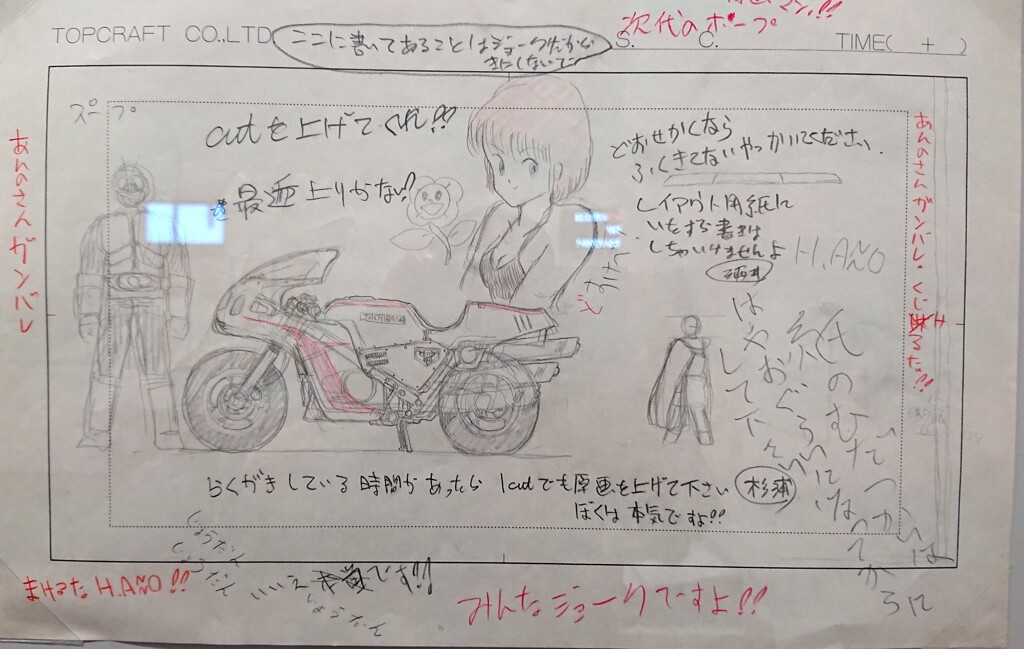 TOPCRAFT CO.,LTD
ここに書いてあることはジョークだから
きにしないで
次代のホープ
S.
C.
TIME( + )
cutを上げてくれ!!
最近上りがない?
どおせかくなら
ふくきてないやつかいてください.
レイアウト用紙に
いたずら書きは
しちゃいけませんよ
H.AÑO
あんのさんガンバレ
あんのさんガンバレ・くじけるな!!
紙のむだづかいは
はやおぐらいになってからに
して下さい
らくがきしている時間があったら 1cutでも原画を上げて下さい
杉浦
ぼくは本気ですよ!!
じょうだん
じょうだん
いいえ
です!!
じょうだん
まけるなH.AÑO!!
みんなジョークですよ!!